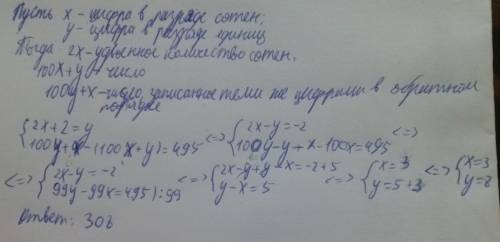 Пусть x - цифра в разряде сотен;
y - цифра в разряде единиц
Тогда 2x - удвоенное количество сотен.
100x+y - число
100y+x - число, записанное теми же цифрами в обратном
порядке
{2x+2=y <=> {2x-y=-2 <=>
{100y+x-(100x+y)=495 {100y-y+x-100x=495
<=> {2x-y=-2 <=> {2x-y+y-x=-2+5 <=> {x=3 <=> {x=3
{99y-99x=495|:99 {y-x=5 {y=5+3 {y=8
Ответ: 308